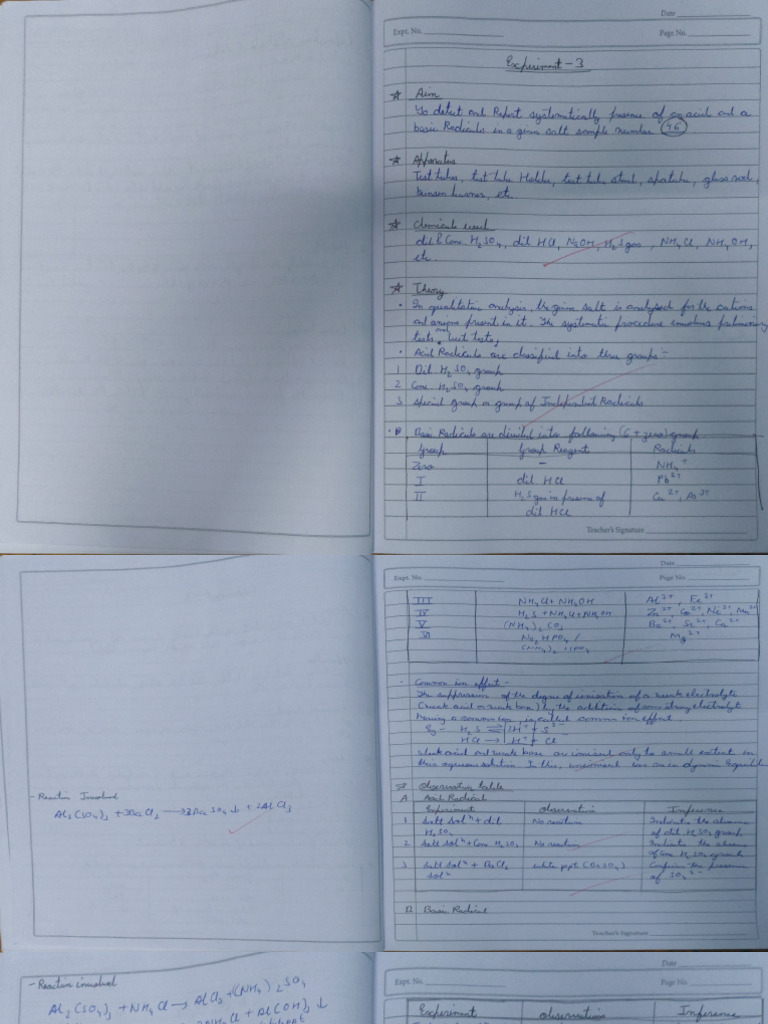 Date
Expt. No.
Page No.
Experiment - 3
Aim
To detect and Report systematically presence of an acid and a
basic Radicals in a given salt sample number 46
Apparatus
Test tubes, test tube Holder, test tube stand, spatula, glass rod,
bunsen burner, etc.
Chemicals used
dil & Conc. H2SO4, dil HCl, NaOH, H2S gas, NH4Cl, NH4OH,
etc.
Theory
In qualitative analysis, the given salt is analysed for the cations
and anions present in it. The systematic procedure involves preliminary
tests and wet tests,
Acid Radicals are classified into three groups:-
1 Dil H2SO4 group
2 Conc. H2SO4 group
3 Special group or group of Independent Radicals
Basic Radicals are divided into following (6 + zero) group
Group Group Reagent Radicals
Zero - NH4+
I dil HCl Pb2+
II H2S gas in presence of Cu2+, As3+
dil HCl
Teacher's Signature
Date
Expt. No.
Page No.
III NH4Cl + NH4OH Al3+, Fe3+
IV H2S + NH4Cl + NH4OH Zn2+, Co2+, Ni2+, Mn2+
V (NH4)2CO3 Ba2+, Sr2+, Ca2+
VI Na2HPO4 / Mg2+
(NH4)2HPO4
Common ion effect -
The suppression of the degree of ionisation of a weak electrolyte
(weak acid or weak base) by the addition of some strong electrolyte
having a common ion, is called common ion effect.
Eg - H2S ⇌ 2H+ + S2-
HCl → H+ + Cl
Weak acid and weak base are ionised only to small extent in
their aqueous solution. In this,
Observation table
A Acid Radical
Experiment Observation Inference
1 Salt solⁿ + dil No reaction Indicates the absence
H2SO4 of dil H2SO4 group
2 Salt solⁿ + Conc H2SO4 No reaction Indicates the absence
of Conc H2SO4 group
3 Salt solⁿ + BaCl2 white ppt (BaSO4) Confirms the presence
solⁿ of SO4 2-
B Basic Radical
Teacher's Signature
- Reaction Involved
Al2(SO4)3 + 3BaCl2 → 3BaSO4 ↓ + 2AlCl3
- Reaction involved
Al2(SO4)3 + NH4Cl → AlCl3 + (NH4)2SO4
NH4Cl + Al(OH)3 ↓
Date
Expt. No.
Page No.
Experiment Observations Inference